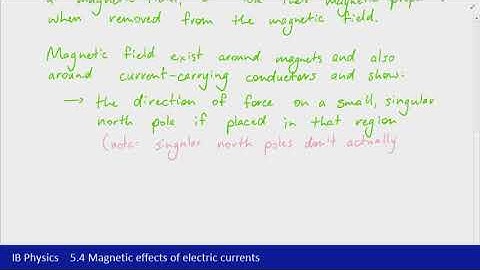 when removed from the magnetic field.
Magnetic field exist around magnets and also
around current-carrying conductors and show:
→ the direction of force on a small, singular
north pole if placed in that region
(note: singular north poles don't actually
IB Physics 5.4 Magnetic effects of electric currents